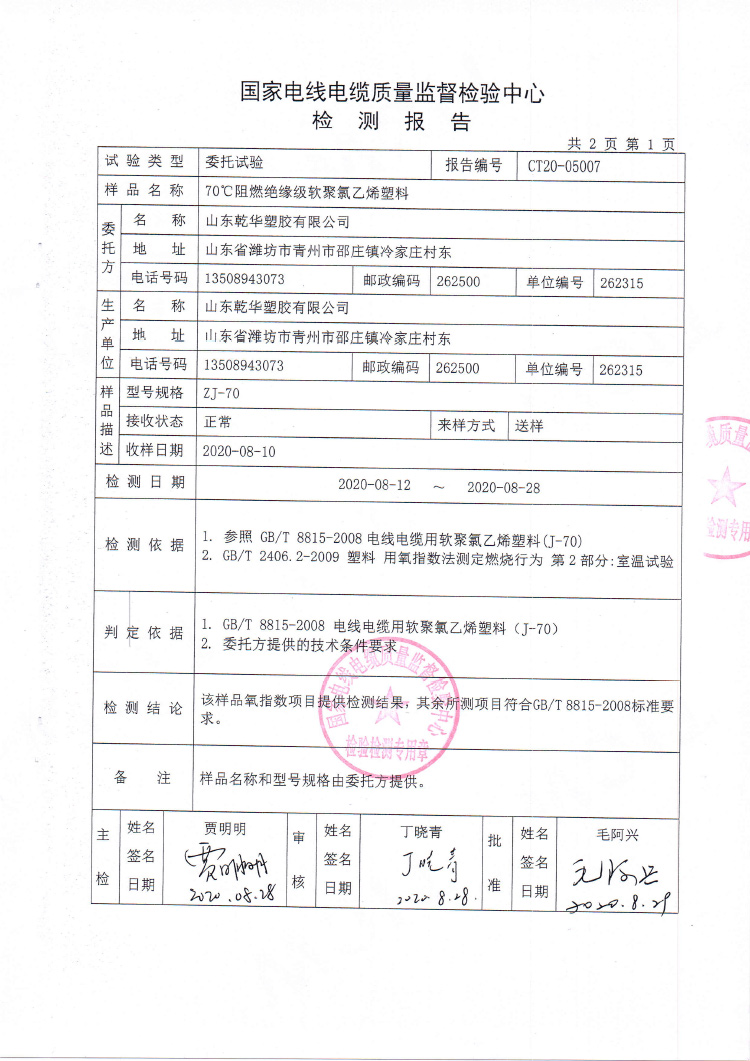 国家电线电缆质量监督检验中心
检 测 报 告
共 2 页 第 1 页
试 验 类 型 委托试验 报告编号 CT20-05007
样 品 名 称 70℃阻燃绝缘级软聚氯乙烯塑料
委托方
名 称 山东乾华塑胶有限公司
地 址 山东省潍坊市青州市邵庄镇冷家庄村东
电话号码 13508943073 邮政编码 262500 单位编号 262315
生产单位
名 称 山东乾华塑胶有限公司
地 址 山东省潍坊市青州市邵庄镇冷家庄村东
电话号码 13508943073 邮政编码 262500 单位编号 262315
样品描述
型号规格 ZJ-70
接收状态 正常 来样方式 送样
收样日期 2020-08-10
检 测 日 期 2020-08-12 ～ 2020-08-28
检 测 依 据
1. 参照 GB/T 8815-2008 电线电缆用软聚氯乙烯塑料(J-70)
2. GB/T 2406.2-2009 塑料 用氧指数法测定燃烧行为 第2部分:室温试验
判 定 依 据
1. GB/T 8815-2008 电线电缆用软聚氯乙烯塑料（J-70）
2. 委托方提供的技术条件要求
检 测 结 论
该样品氧指数项目提供检测结果，其余所测项目符合GB/T 8815-2008标准要
求。
国家电线电缆质量监督检验中心
检验检测专用章
备 注 样品名称和型号规格由委托方提供。
主检 姓名 贾明明 审核 姓名 丁晓青 批准 姓名 毛阿兴
签名 贾明明 签名 丁晓青 签名 毛阿兴
日期 2020.08.28 日期 2020.8.28. 日期 2020.8.29
质量
检测专用